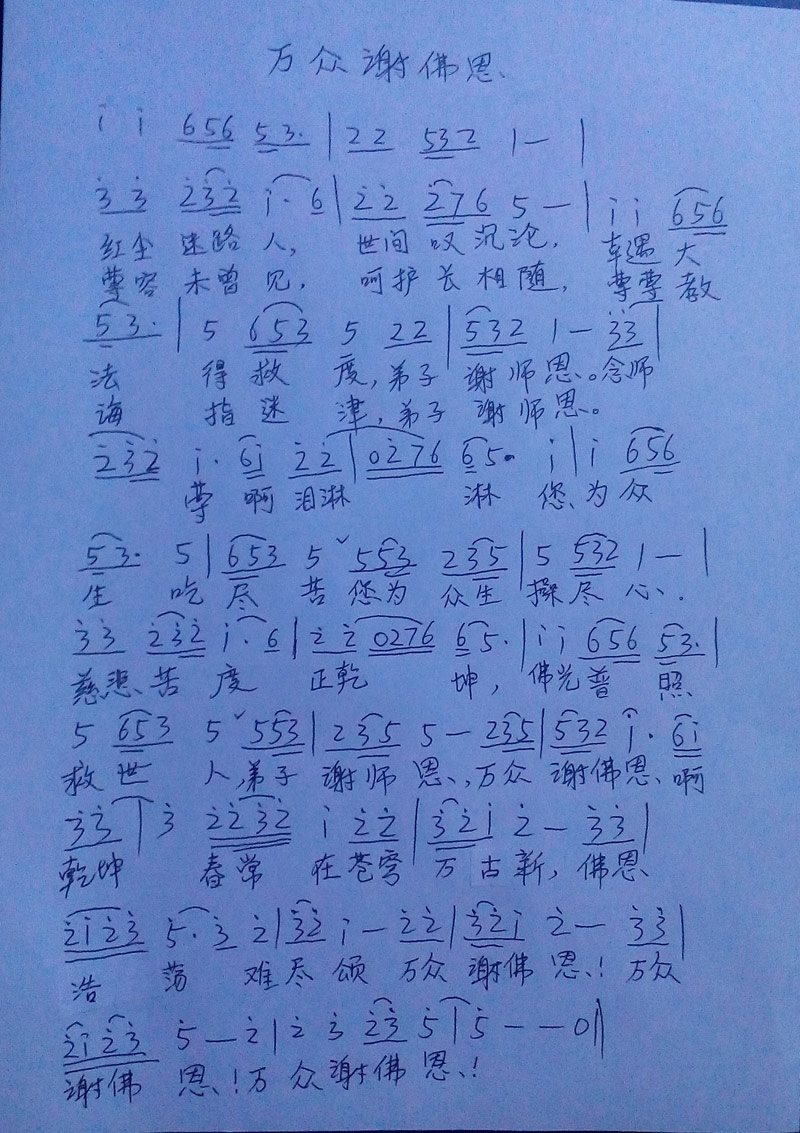 万众谢佛恩
i i 656 53. | 22 532 1- |
3 3 232 i. 6 | 22 276 5- | i i 656
红尘 迷路 人, 世间 叹沉沦, 幸遇 大
尊容 未曾 见, 呵护 长相随, 尊尊 教
53. | 5 653 5 22 | 532 1- 33 |
法 得救 度,弟子 谢师恩。念师
诲 指迷 津,弟子 谢师恩。
232 i. 6i 22 | 0276 65. i | i 656
尊 啊 泪淋 淋 您、为众
53. 5 | 653 5ˇ 553 235 | 5 532 1- |
生 吃 尽 苦 您为 众生 操尽 心、.
33 232 i. 6 | 2 2 0276 65. | i i 656 53. |
慈悲、苦 度 正乾 坤, 佛光普 照
5 653 5ˇ 553 | 235 5- 235 | 532 i. 6i
救世 人,弟子 谢师 恩、,万众 谢佛恩、啊
33 | 3 2232 i 22 | 32i 2- 33 |
乾坤 春常 在苍穹 万古新, 佛恩
2i23 5. 3 2 | 32 i- 22 | 32i 2- 33 |
浩 荡 难尽 颂 万众 谢佛 恩、! 万众
2i23 5- 2 | 2 3 23 5 | 5 - - 0 ||
谢佛 恩、! 万众谢佛恩、!